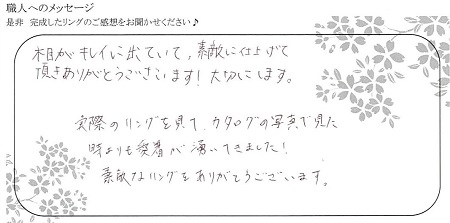 職人へのメッセージ
是非 完成したリングのご感想をお聞かせください♪
木目がキレイに出ていて、素敵に仕上げて
頂きありがとうございます!大切にします。
実際のリングを見て、カタログの写真で見た
時よりも愛着が湧いてきました!
素敵なリングをありがとうございます。